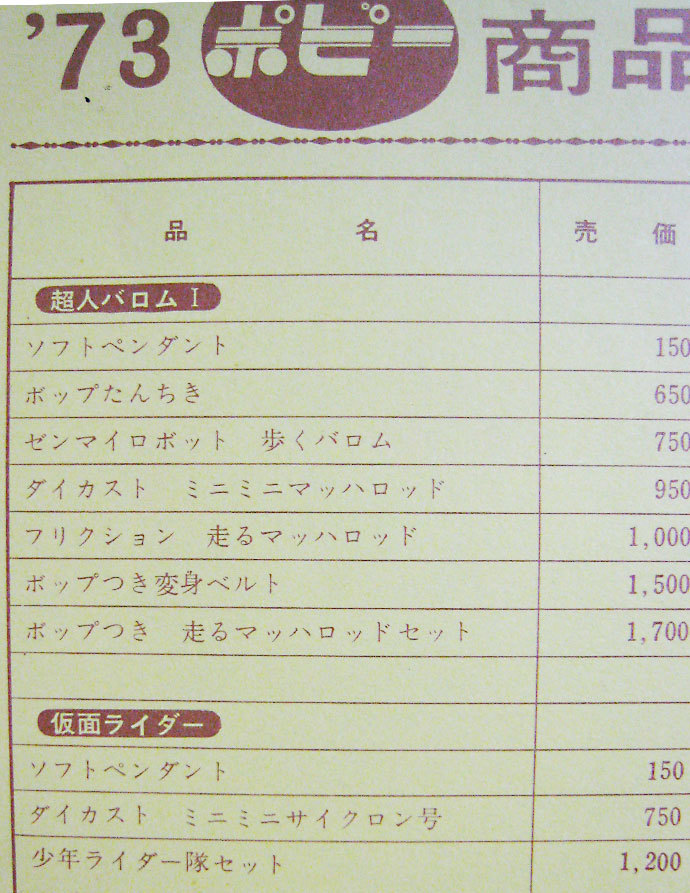 '73 ポピー 商品
品名 売価
超人バロムⅠ
ソフトペンダント 150
ボップたんちき 650
ゼンマイロボット 歩くバロム 750
ダイカスト ミニミニマッハロッド 950
フリクション 走るマッハロッド 1,000
ボップつき変身ベルト 1,500
ボップつき 走るマッハロッドセット 1,700
仮面ライダー
ソフトペンダント 150
ダイカスト ミニミニサイクロン号 750
少年ライダー隊セット 1,200